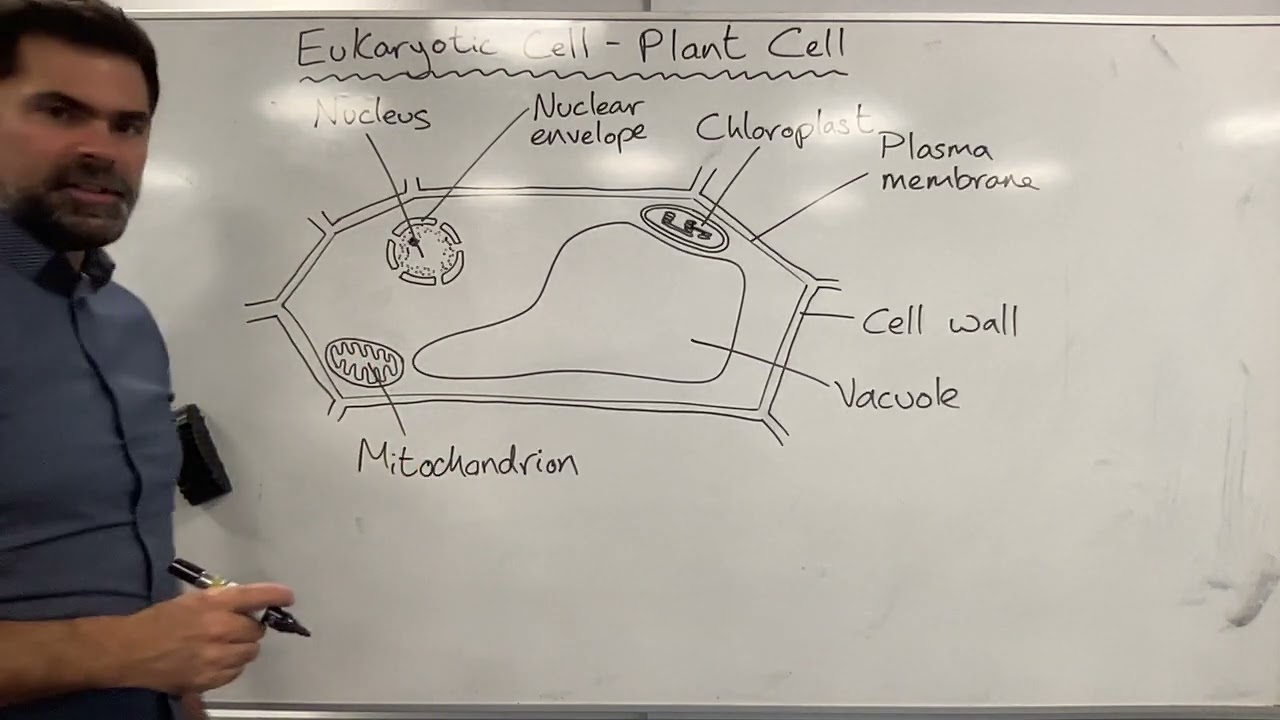 Eukaryotic Cell - Plant Cell
Nucleus
Nuclear
envelope
Chloroplast
Plasma
membrane
Cell wall
Vacuole
Mitochondrion